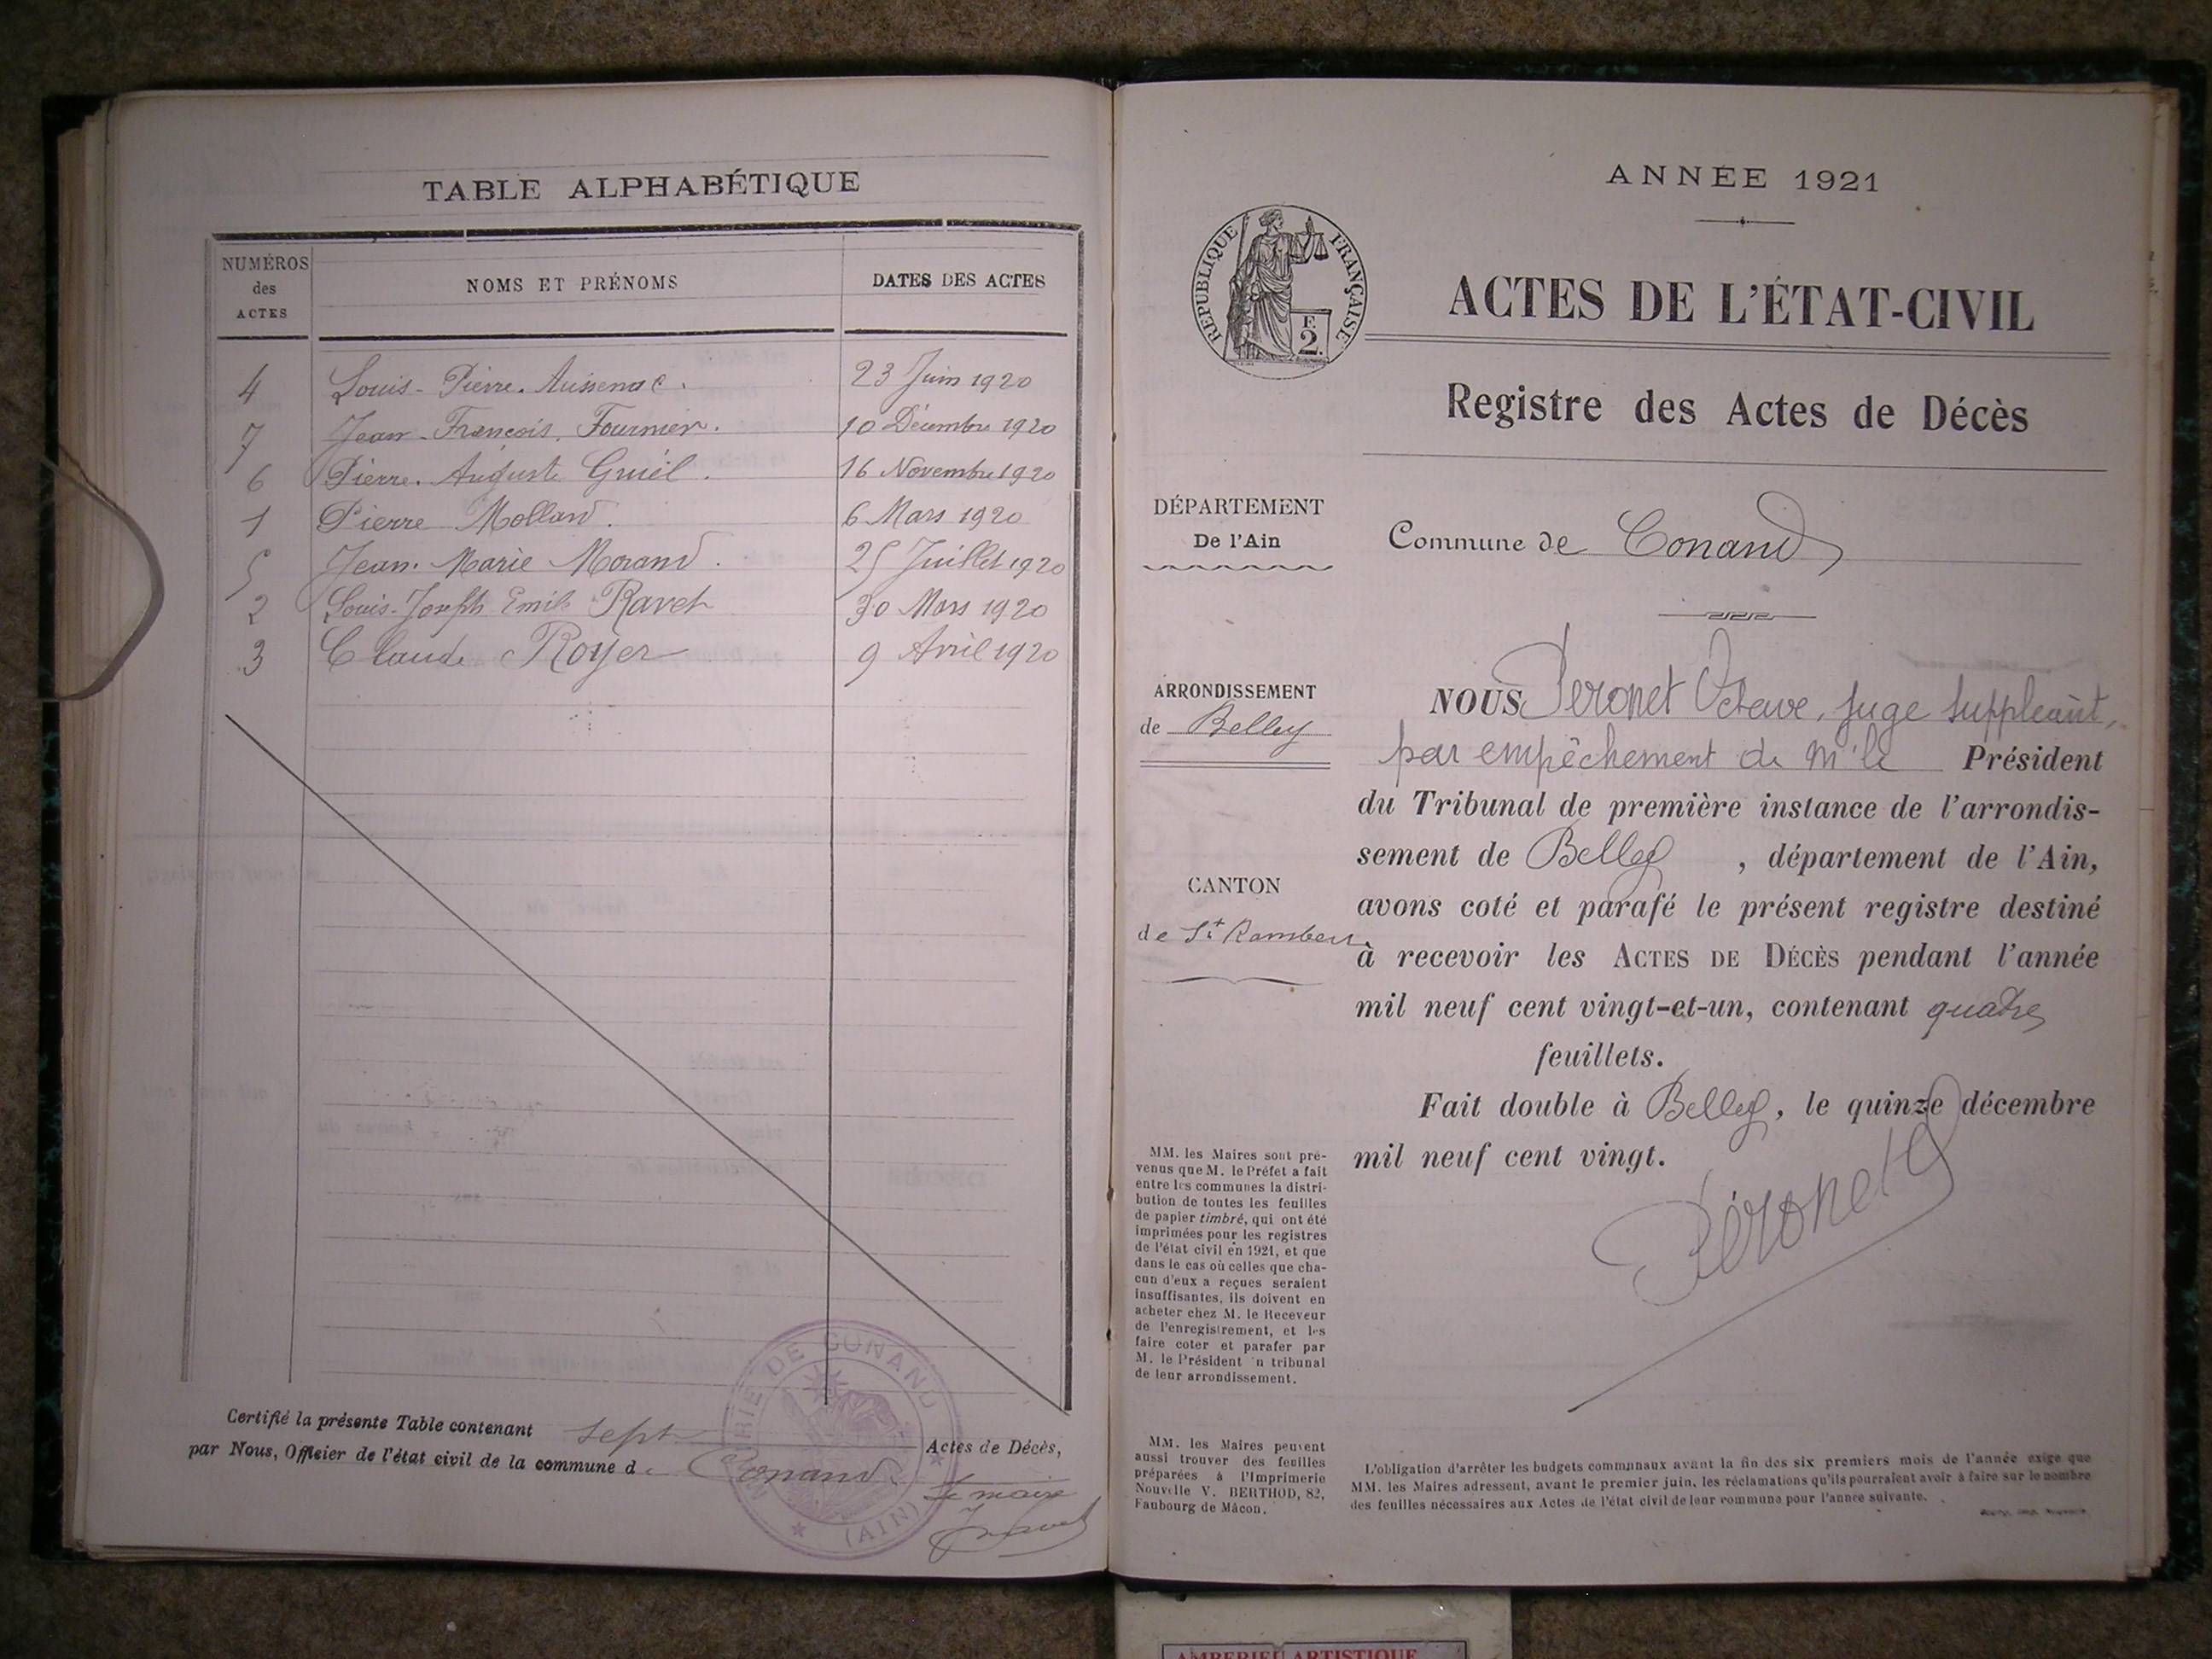 TABLE ALPHABÉTIQUE
NUMÉROS des ACTES
NOMS ET PRÉNOMS
DATES DES ACTES
4 Louis-Pierre. Aussenac. 23 Juin 1920
7 Jean-François. Fournier. 10 Décembre 1920
6 Pierre. Auguste Gruel. 16 Novembre 1920
1 Pierre Molland. 6 Mars 1920
5 Jean. Marie Morand. 25 Juillet 1920
2 Louis-Joseph Emile Ravet 30 Mars 1920
3 Claude Royer 9 Avril 1920
Certifié la présente Table contenant sept Actes de Décès,
par Nous, Officier de l'état civil de la commune de Conand
Le maire
MAIRIE DE CONAND
(AIN)
ANNÉE 1921
RÉPUBLIQUE FRANÇAISE
F.
2.
ACTES DE L'ÉTAT-CIVIL
Registre des Actes de Décès
DÉPARTEMENT
De l'Ain
Commune de Conand
ARRONDISSEMENT
de Belley
CANTON
de St Rambert
NOUS Peronet Octave, juge suppleant,
par empêchement de Mr le Président
du Tribunal de première instance de l'arrondis-
sement de Belley, département de l'Ain,
avons coté et parafé le présent registre destiné
à recevoir les ACTES DE DÉCÈS pendant l'année
mil neuf cent vingt-et-un, contenant quatre
feuillets.
Fait double à Belley, le quinze décembre
mil neuf cent vingt.
Péronet
MM. les Maires sont pré-
venus que M. le Préfet a fait
entre les communes la distri-
bution de toutes les feuilles
de papier timbré, qui ont été
imprimées pour les registres
de l'état civil en 1921, et que
dans le cas où celles que cha-
cun d'eux a reçues seraient
insuffisantes, ils doivent en
acheter chez M. le Receveur
de l'enregistrement, et les
faire coter et parafer par
M. le Président 'n tribunal
de leur arrondissement.
MM. les Maires peuvent
aussi trouver des feuilles
préparées à l'Imprimerie
Nouvelle V. BERTHOD, 82,
Faubourg de Mâcon.
L'obligation d'arrêter les budgets communaux avant la fin des six premiers mois de l'année exige que
MM. les Maires adressent, avant le premier juin, les réclamations qu'ils pourraient avoir à faire sur le nombre
des feuilles nécessaires aux Actes de l'état civil de leur commune pour l'année suivante.
AMBERIEU ARTISTIQUE